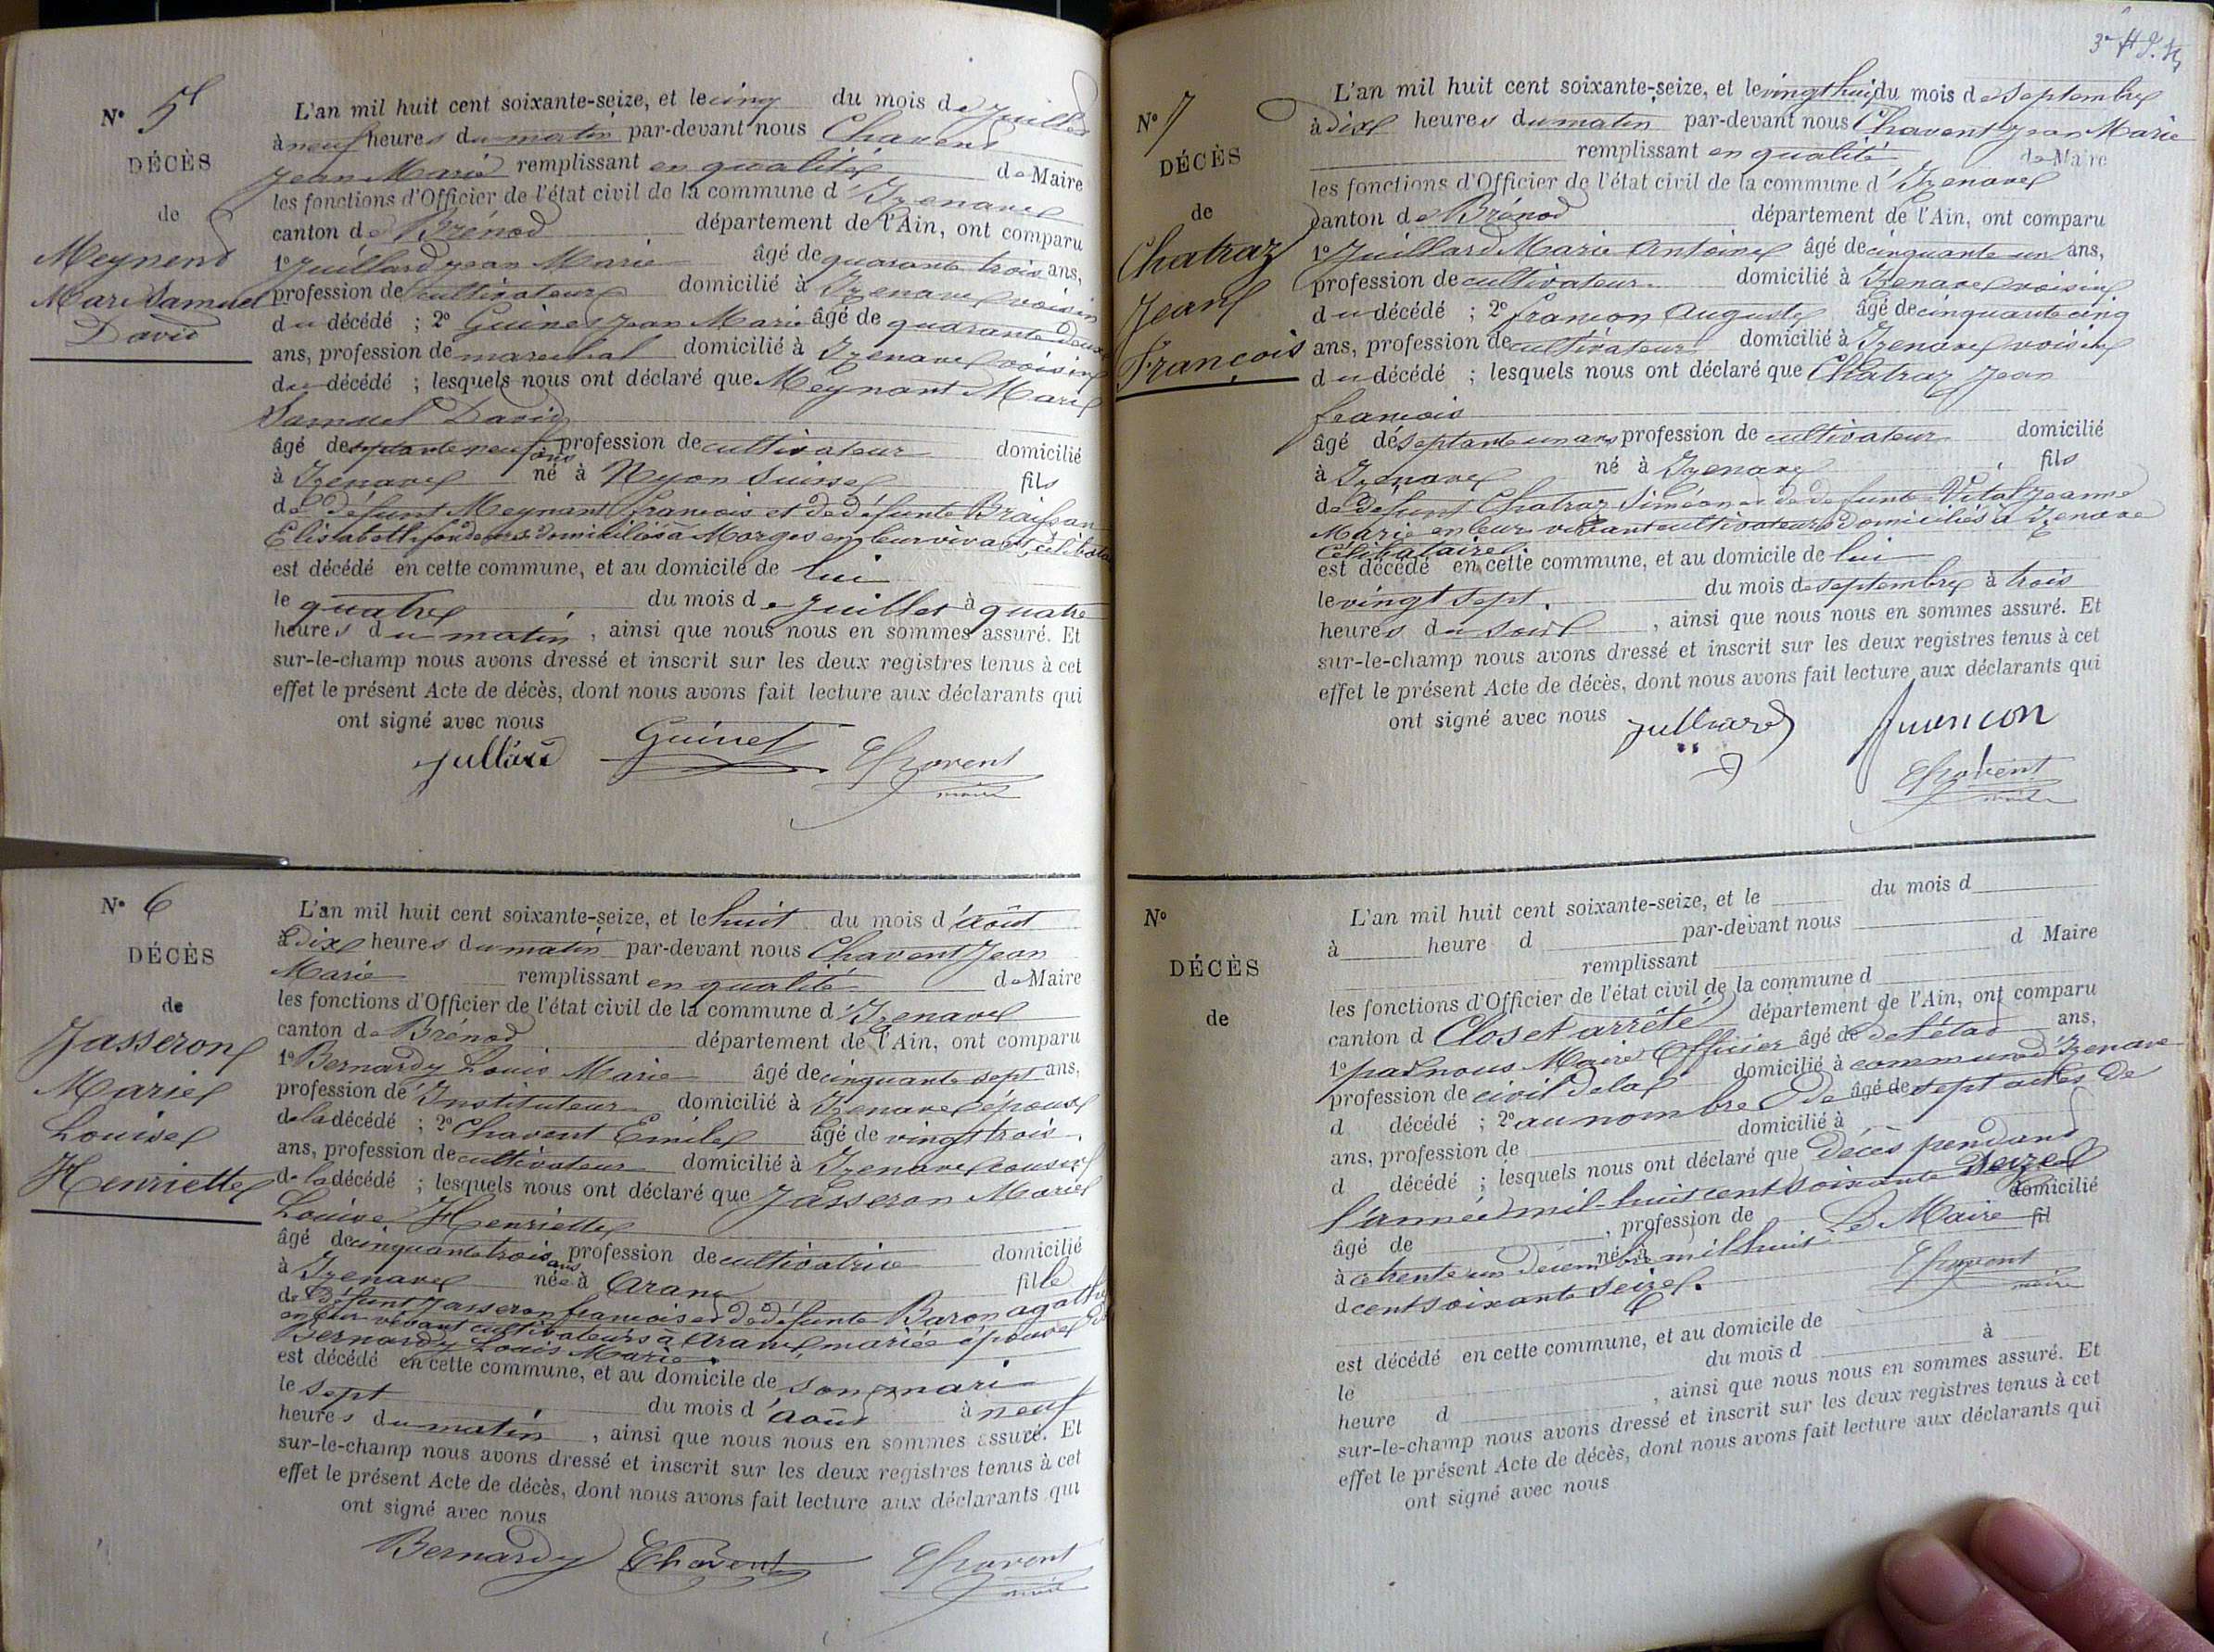 N° 5
DÉCÈS
de
Meynend
Marc Samuel
David
L'an mil huit cent soixante-seize, et le cinq du mois de Juillet
à neuf heures du matin par-devant nous Chavent
Jean Marie remplissant en qualité de Maire
les fonctions d'Officier de l'état civil de la commune d'Izenave
canton de Brénod département de l'Ain, ont comparu
1° Juillard Jean Marie âgé de quarante trois ans,
profession de cultivateur domicilié à Izenave voisin
du décédé ; 2° Guinet Jean Marie âgé de quarante deux
ans, profession de marechal domicilié à Izenave voisin
du décédé ; lesquels nous ont déclaré que Meynant Marc
Samuel David
âgé de septante neuf ans profession de cultivateur domicilié
à Izenave né à Nyon Suisse fils
de défunt Meynant francois et de défunte Braissan
Elisabeth domiciliés à Morges en leur vivant,
est décédé en cette commune, et au domicile de lui
le quatre du mois de Juillet à quatre
heures du matin, ainsi que nous nous en sommes assuré. Et
sur-le-champ nous avons dressé et inscrit sur les deux registres tenus à cet
effet le présent Acte de décès, dont nous avons fait lecture aux déclarants qui
ont signé avec nous
Julliard Guinet Chavent
maire
N° 6
DÉCÈS
de
Jasseron
Marie
Louise
Henriette
L'an mil huit cent soixante-seize, et le huit du mois d'Août
à dix heures du matin par-devant nous Chavent Jean
Marie remplissant en qualité de Maire
les fonctions d'Officier de l'état civil de la commune d'Izenave
canton de Brénod département de l'Ain, ont comparu
1° Bernardy Louis Marie âgé de cinquante sept ans,
profession d'Instituteur domicilié à Izenave époux
de la décédé ; 2° Chavent Emile âgé de vingt trois
ans, profession de cultivateur domicilié à Izenave cousin
de la décédé ; lesquels nous ont déclaré que Jasseron Marie
Louise Henriette
âgé de cinquante trois ans profession de cultivatrice domicilié
à Izenave née à Aranc fille
de défunt Jasseron francois et de défunte Baron agathe
en leur vivant cultivateurs à Aranc, mariée épouse de
Bernardy Louis Marie.
est décédé en cette commune, et au domicile de son mari
le sept du mois d'Août à neuf
heures du matin, ainsi que nous nous en sommes assuré. Et
sur-le-champ nous avons dressé et inscrit sur les deux registres tenus à cet
effet le présent Acte de décès, dont nous avons fait lecture aux déclarants qui
ont signé avec nous
Bernardy Chavent Chavent
maire
N° 7
DÉCÈS
de
Chatraz
Jean
François
L'an mil huit cent soixante-seize, et le vingt huit du mois de Septembre
à dix heures du matin par-devant nous Chavent Jean Marie
remplissant en qualité de Maire
les fonctions d'Officier de l'état civil de la commune d'Izenave
canton de Brénod département de l'Ain, ont comparu
1° Juillard Marie Antoine âgé de cinquante un ans,
profession de cultivateur domicilié à Izenave voisin
du décédé ; 2° francon Auguste âgé de cinquante cinq
ans, profession de cultivateur domicilié à Izenave voisin
du décédé ; lesquels nous ont déclaré que Chatraz Jean
francois
âgé de septante un ans profession de cultivateur domicilié
à Izenave né à Izenave fils
de défunt Chatraz Siméon et de défunte Vital Jeanne
Marie en leur vivant cultivateurs domiciliés à Izenave
Célibataire.
est décédé en cette commune, et au domicile de lui
le vingt sept. du mois de septembre à trois
heures du soir, ainsi que nous nous en sommes assuré. Et
sur-le-champ nous avons dressé et inscrit sur les deux registres tenus à cet
effet le présent Acte de décès, dont nous avons fait lecture aux déclarants qui
ont signé avec nous
Julliard francon
Chavent
maire
N°
DÉCÈS
de
L'an mil huit cent soixante-seize, et le du mois d
à heure d par-devant nous
remplissant d Maire
les fonctions d'Officier de l'état civil de la commune d
canton d Clos et arrêté département de l'Ain, ont comparu
1° par nous Maire Officier âgé de de l'état ans,
profession de civil de la domicilié à commune d'Izenave
d décédé ; 2° au nombre de âgé de sept actes de
ans, profession de domicilié à
d décédé ; lesquels nous ont déclaré que Décès pendant
l'année mil-huit cent soixante seize domicilié
âgé de , profession de Le Maire fil
à ce trente un décembre né à mil huit Chavent
d cent soixante seize. maire
est décédé en cette commune, et au domicile de
le du mois d à
heure d , ainsi que nous nous en sommes assuré. Et
sur-le-champ nous avons dressé et inscrit sur les deux registres tenus à cet
effet le présent Acte de décès, dont nous avons fait lecture aux déclarants qui
ont signé avec nous